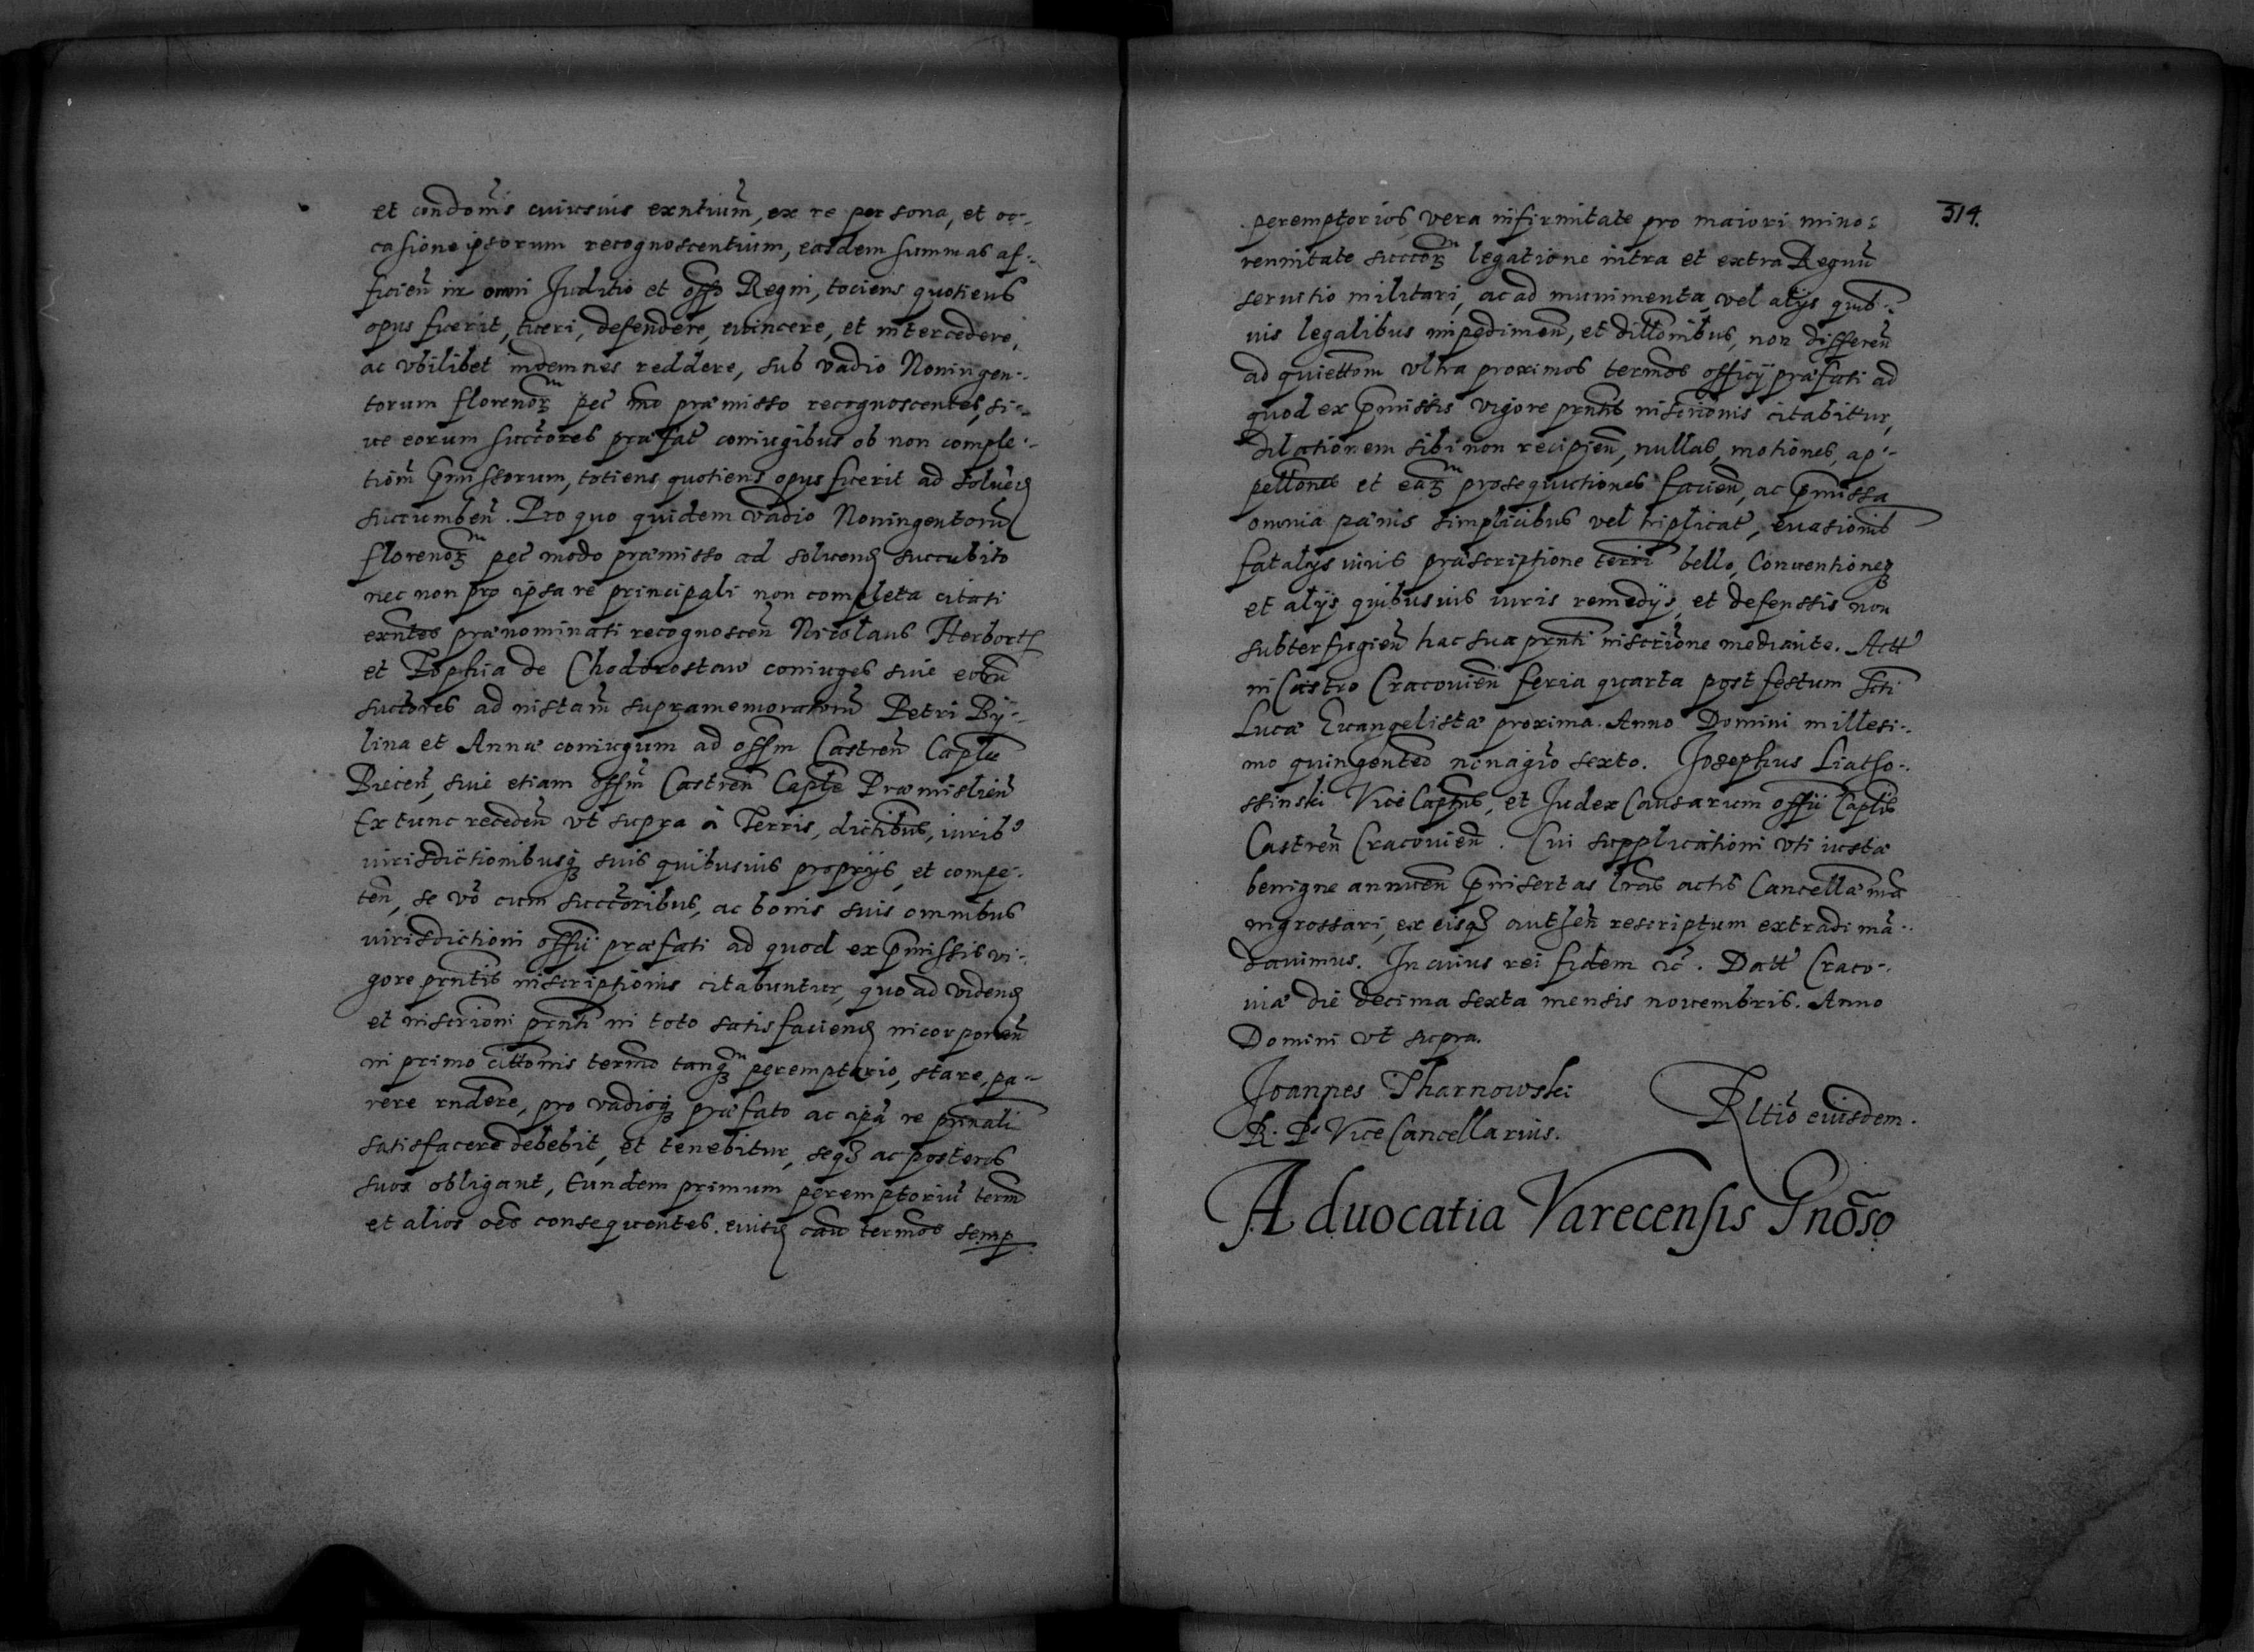 et condom̃s cuiusuis exntium̃, ex re persona, et oc-
casione ipsorum recognoscentium, easdem summas af-
ficien̄ in omni Juditio et offo Regni, tociens quotiens
opus fuerit, tueri, defendere, euincere, et intercedere,
ac vbilibet indemnes reddere, sub vadio Noningen-
torum florenoꝝ pec̃ mo præmisso recognoscentes, si-
ue eorum succ̃ores præfat̃ coniugibus ob non comple-
tiom̃ p̄missorum, totiens quotiens opus fuerit ad soluen̄
succumben̄. Pro quo quidem vadio Noningentorū
florenoꝝ pec̃ modo præmisso ad soluend succubito
nec non pro ipsa re principali non completa citati
exn̄tes prænominati recognoscen̄ Nicolaus Herbortt
et Sophia de Chodorostaw coniuges siue eorū
succ̃ores ad instam̃ supramemoratorū Petri By-
lina et Annæ coniugum ad offm Castren̄ Caplē
Biecen̄, siue etiam offm̃ Castren̄ Caplē Præmislien̄
Extunc receden̄ vt supra à Terris, dictibus, iurib9
iurisdictionibusqꝫ suis quibusuis proprijs, et compe-
ten̄, se vō cum succ̃oribus, ac bonis suis omnibus
iurisdictioni offii præfati ad quod ex p̄missis vi-
gore pn̄tis inscriptionis citabuntur, quo ad videnđ
et inscrioni pn̄ti in toto satisfaciend incorporan̄
in primo cittōnis termō tanqꝫ peremptorio, stare, pa-
rere rndere, pro vadioqꝫ præfato ac ipā re prīnali
satisfacere debebit, et tenebitur, seqꝫ ac posteros
suos obligant, Eundem primum peremptoriū term̄
et alios oēs consequentes. cuiusꝫ cāu termōs semp
314.
peremptorios, vera infirmitate pro maiori mino-
rennitate succoꝝ legatione intra et extra Regnū
seruitio militari, ac ad munimenta, vel alijs quib-
uis legalibus impedimen̄, et dillōnibus, non differen̄
ad quiettōm vltra proximos termōs officij præfati ad
quod ex p̄missis vigore pn̄tis inscrīonis citabitur,
dilationem sibi non recipien̄, nullas, motiones, ap-
pellōnes et eaꝝ prosequutiones facien̄, ac p̄missa
omnia pænis simplicibus vel triplicat̃, euasionis
fatalijs iuris præscriptione terrī bello, Conuentioneqꝫ
et alijs quibusuis iuris remedijs, et defenssis non
subterfugien̄ hac sua pn̄ti inscrīone mediante. Actt̃
in Castro Cracouien̄ feria quarta post festum Scti
Lucæ Euangelistæ proxima. Anno Domini millesi-
mo quingenteō nonagīo sexto. Josephus Liatho-
ssinski ViceCaptus, et Judex Causarum offii Caplis
Castren̄ Cracouien̄. Cui supplicationi vti iustæ
benigne annuen̄ p̄insertas lrās actis Cancellæ nr̄æ
ingrossari, ex eisqꝫ authen̄ rescriptum extradi mā-
dauimus. In cuius rei fidem ec̃. Datt̃ Craco-
uiæ die decima sexta mensis nouembris. Anno
Domini vt supra.
Joannes Tharnowski
R. P. Vice Cancellarius.
Rltio eiusdem.
Aduocatia Varecensis Gnōso